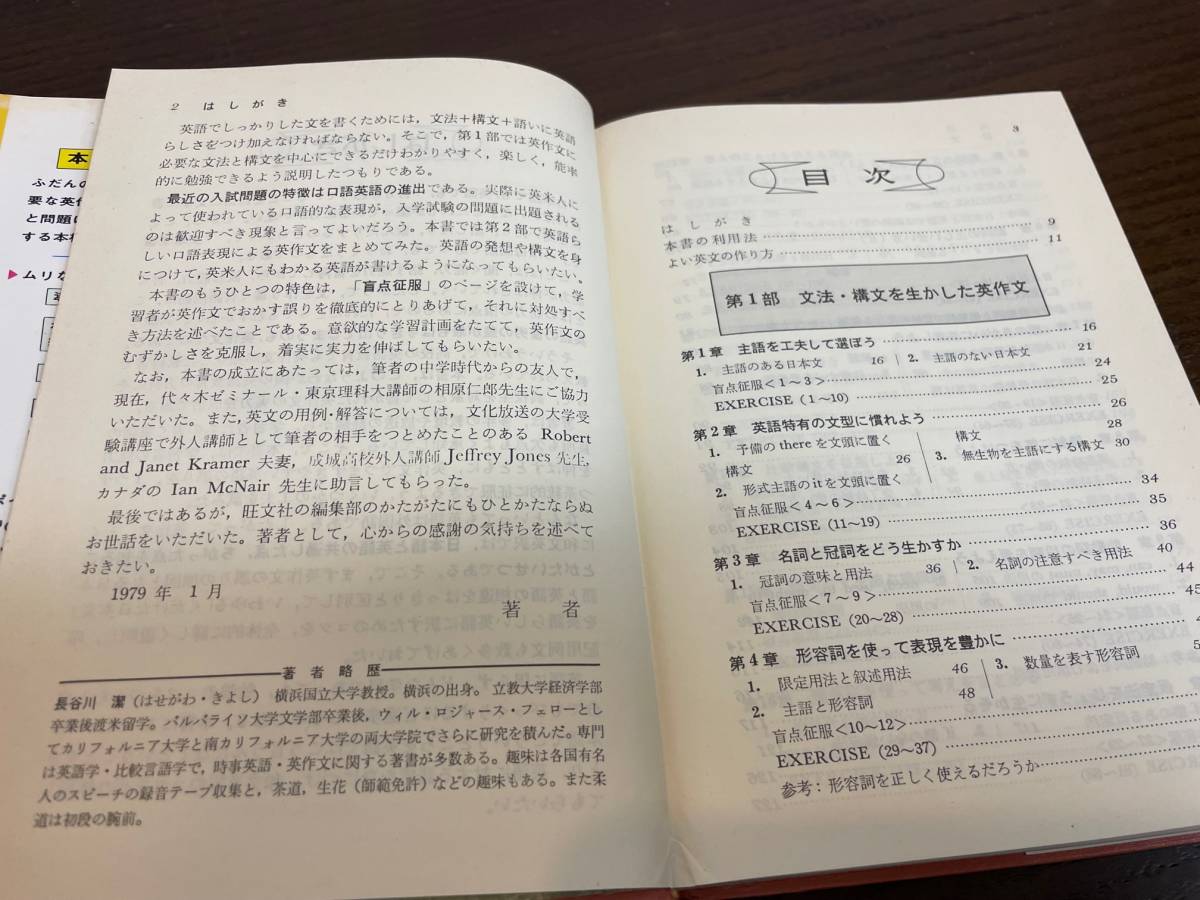 本
ふだんの
要な英作
と問題に
する本格
▶ムリな
2 はしがき
英語でしっかりした文を書くためには，文法＋構文＋語いに英語
らしさをつけ加えなければならない。そこで，第1部では英作文に
必要な文法と構文を中心にできるだけわかりやすく，楽しく，能率
的に勉強できるよう説明したつもりである。
最近の入試問題の特徴は口語英語の進出である。実際に英米人に
よって使われている口語的な表現が，入学試験の問題に出題される
のは歓迎すべき現象と言ってよいだろう。本書では第2部で英語ら
しい口語表現による英作文をまとめてみた。英語の発想や構文を身
につけて，英米人にもわかる英語が書けるようになってもらいたい。
本書のもうひとつの特色は，「盲点征服」のページを設けて，学
習者が英作文でおかす誤りを徹底的にとりあげて，それに対処すべ
き方法を述べたことである。意欲的な学習計画をたてて，英作文の
むずかしさを克服し，着実に実力を伸ばしてもらいたい。
なお，本書の成立にあたっては，筆者の中学時代からの友人で，
現在，代々木ゼミナール・東京理科大講師の相原仁郎先生にご協力
いただいた。また，英文の用例・解答については，文化放送の大学受
験講座で外人講師として筆者の相手をつとめたことのある Robert
and Janet Kramer 夫妻，成城高校外人講師 Jeffrey Jones 先生，
カナダの Ian McNair 先生に助言してもらった。
最後ではあるが，旺文社の編集部のかたがたにもひとかたならぬ
お世話をいただいた。著者として，心からの感謝の気持ちを述べて
おきたい。
1979 年 1 月
著 者
著者略歴
長谷川 潔（はせがわ・きよし） 横浜国立大学教授。横浜の出身。立教大学経済学部
卒業後渡米留学。バルパライソ大学文学部卒業後，ウィル・ロジャース・フェローとし
てカリフォルニア大学と南カリフォルニア大学の両大学院でさらに研究を積んだ。専門
は英語学・比較言語学で，時事英語・英作文に関する著書が多数ある。趣味は各国有名
人のスピーチの録音テープ収集と，茶道，生花（師範免許）などの趣味もある。また柔
道は初段の腕前。
3
目次
はしがき
本書の利用法 9
よい英文の作り方 11
第1部 文法・構文を生かした英作文
第1章 主語を工夫して選ぼう 16
1. 主語のある日本文 16 2. 主語のない日本文 21
盲点征服＜1～3＞ 24
EXERCISE (1～10) 25
第2章 英語特有の文型に慣れよう 26
1. 予備の there を文頭に置く 構文 28
構文 26 3. 無生物を主語にする構文 30
2. 形式主語の it を文頭に置く
盲点征服＜4～6＞ 34
EXERCISE (11～19) 35
第3章 名詞と冠詞をどう生かすか 36
1. 冠詞の意味と用法 36 2. 名詞の注意すべき用法 40
盲点征服＜7～9＞ 44
EXERCISE (20～28) 45
第4章 形容詞を使って表現を豊かに
1. 限定用法と叙述用法 46 3. 数量を表す形容詞
2. 主語と形容詞 48
盲点征服＜10～12＞
EXERCISE (29～37)
参考：形容詞を正しく使えるだろうか